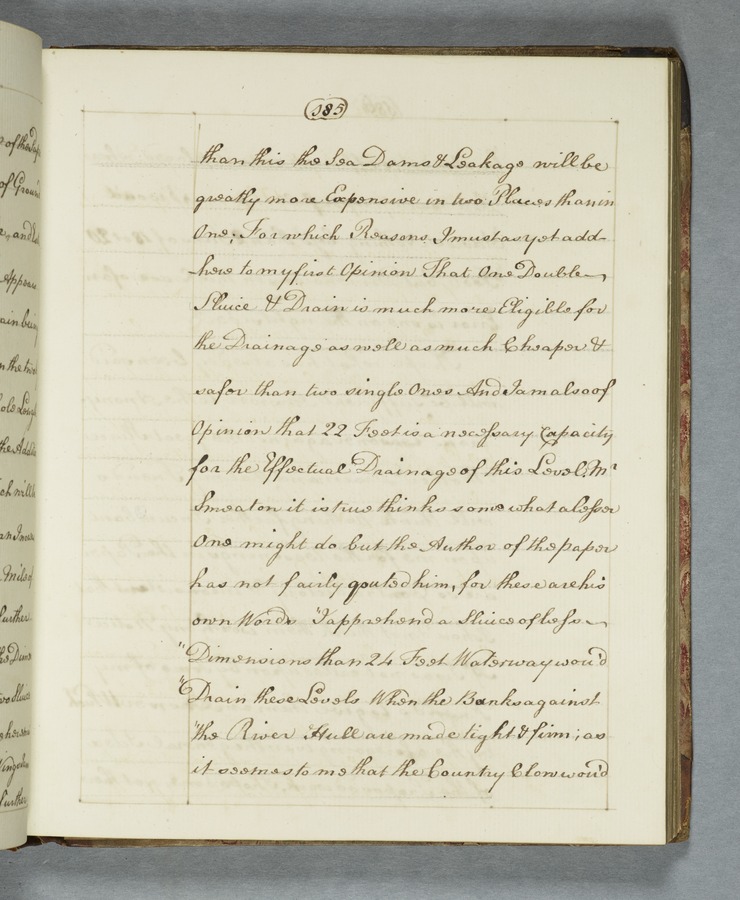 185
than this the Sea Dams & Leakage will be
greatly more Expensive in two Places than in
One; For which Reasons I must as yet add-
here to my first Opinion That One Double
Sluice & Drain is much more Eligible for
the Drainage as well as much Cheaper &
safer than two single Ones And I am also of
Opinion that 22 Feet is a necessary Capacity
for the Effectual Drainage of this Level, Mr
Smeaton it is true thinks some what a lesser
One might do but the Author of the paper
has not fairly qouted him, for these are his
own Words "I apprehend a Sluice of less
"Dimensions than 24 Feet Waterway wou'd
"Drain these Levels When the Banks against
"the River Hull are made tight & firm; as
it seems to me that the Country Clows wou'd